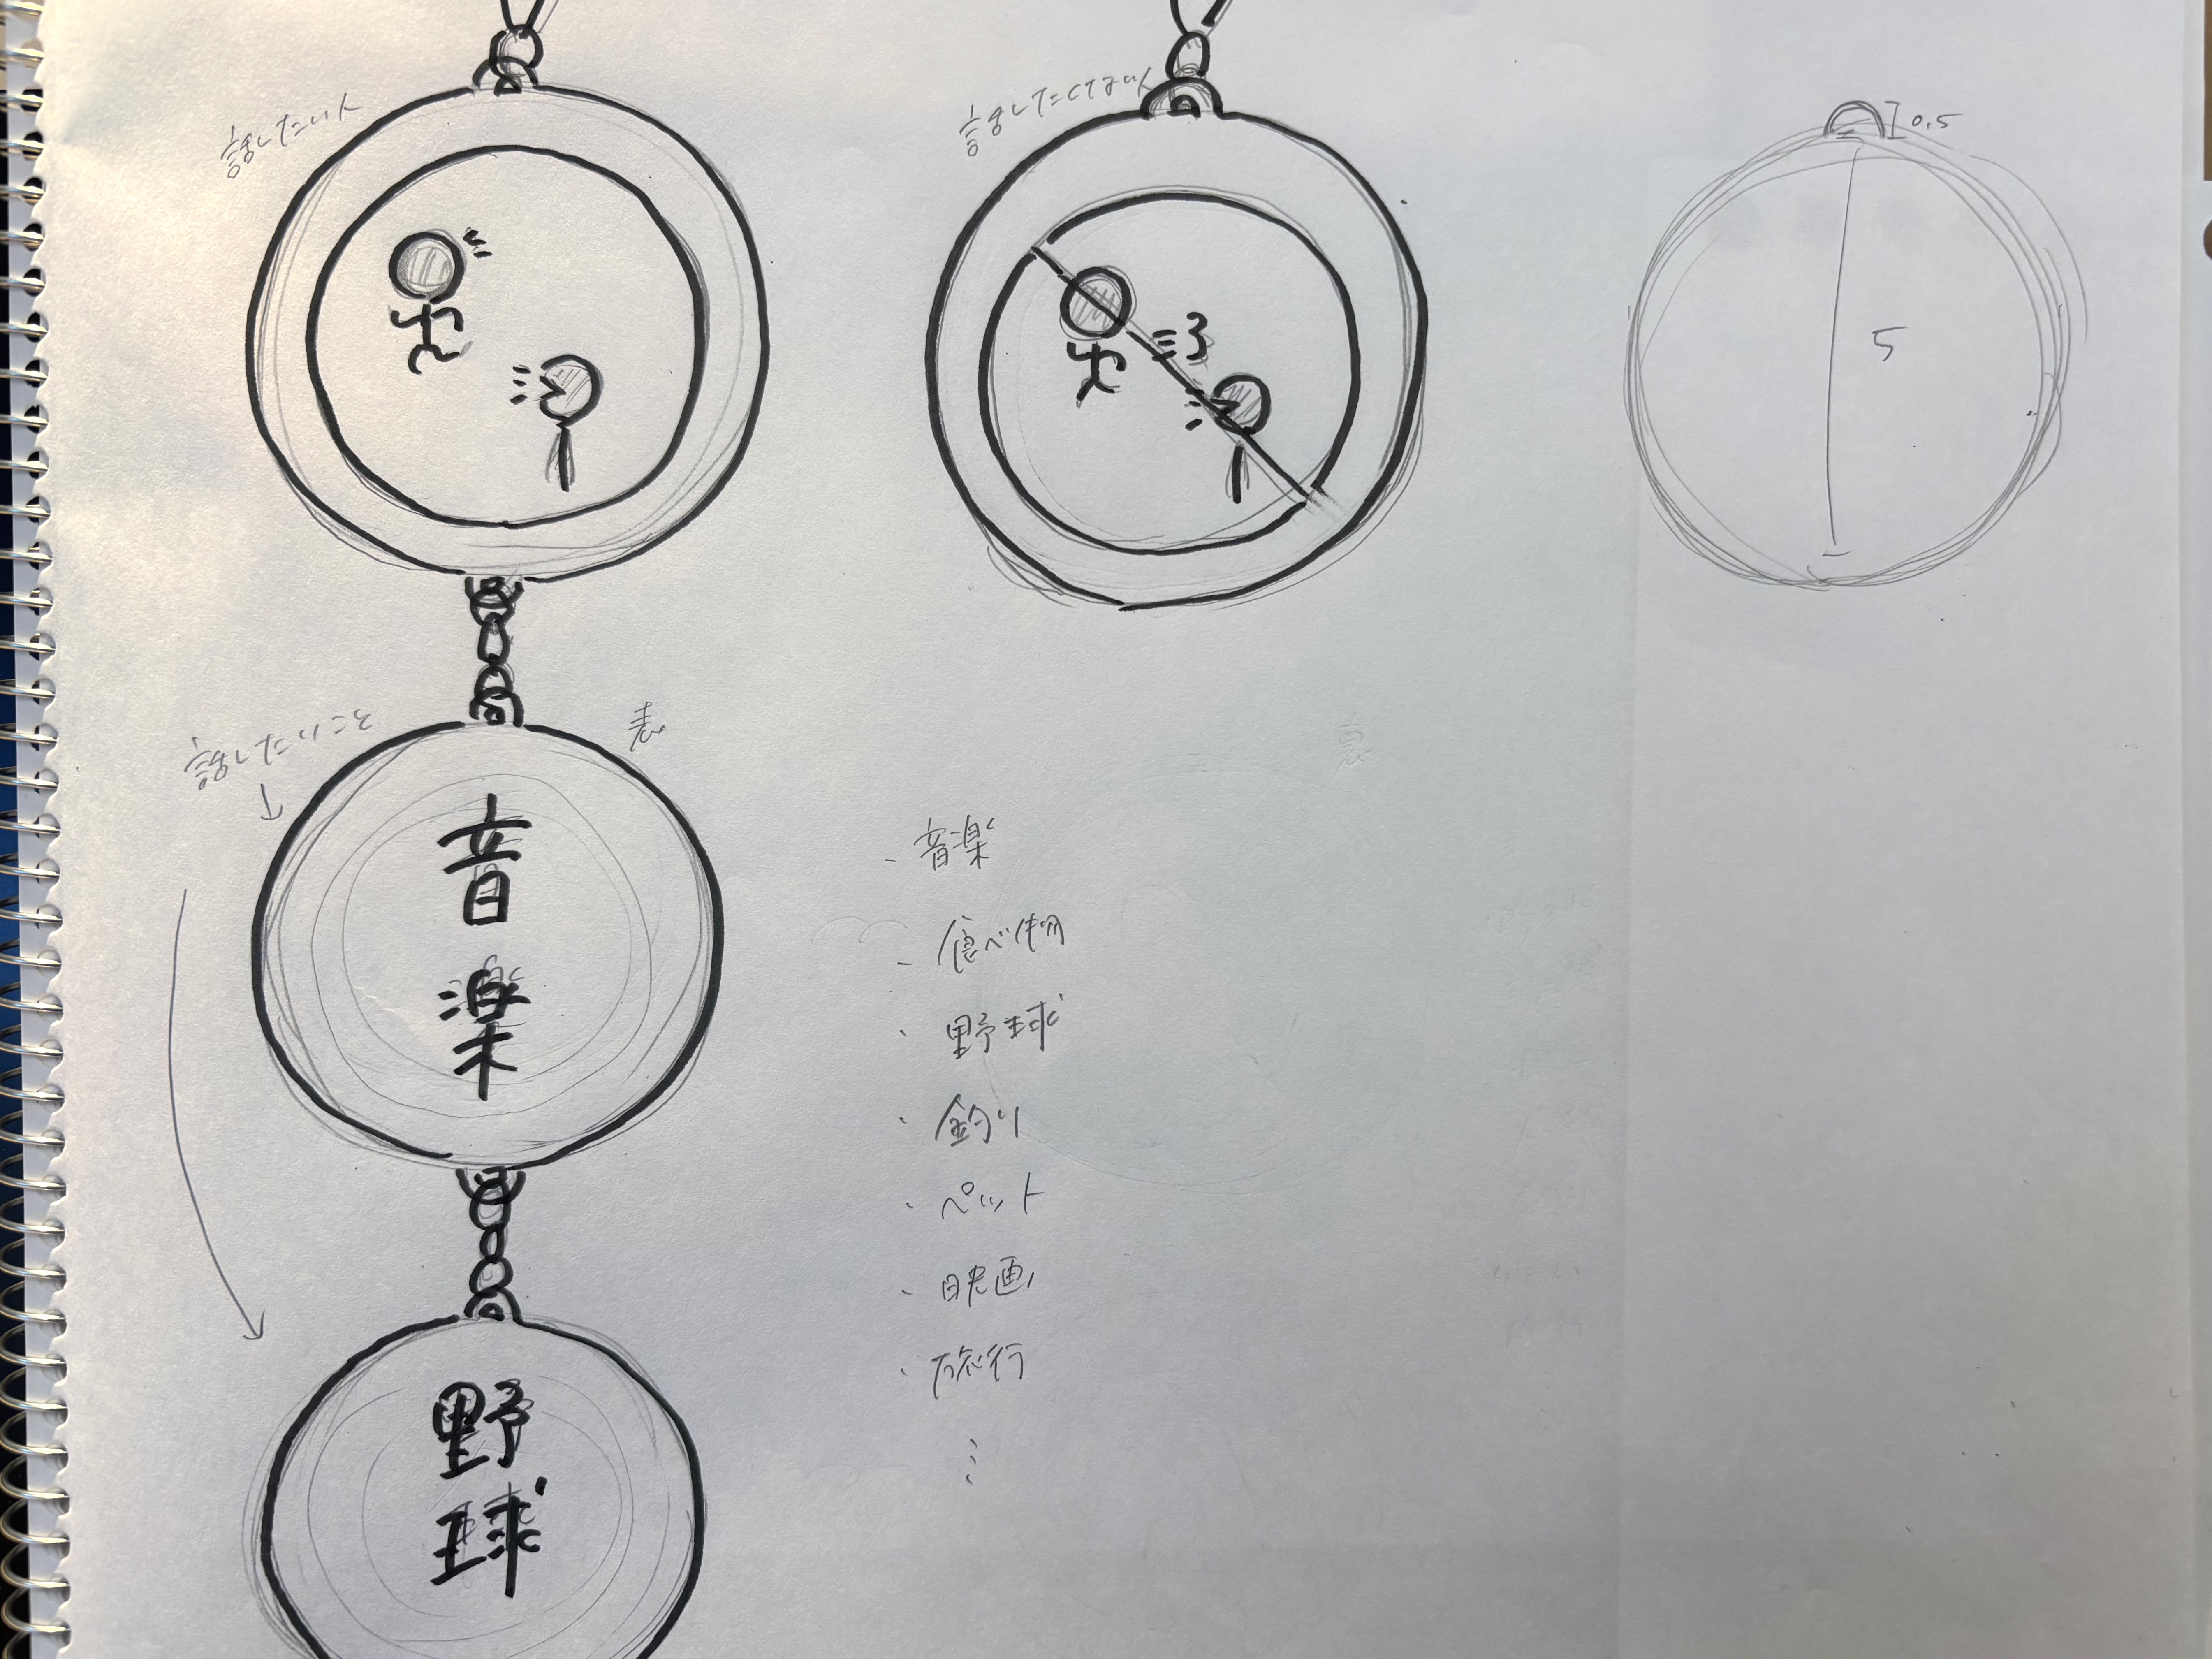 話したい人
話したくない人
0.5
5
話したいこと
表
裏
音楽
・音楽
・食べ物
・野球
・釣り
・ペット
・映画
・旅行
野球